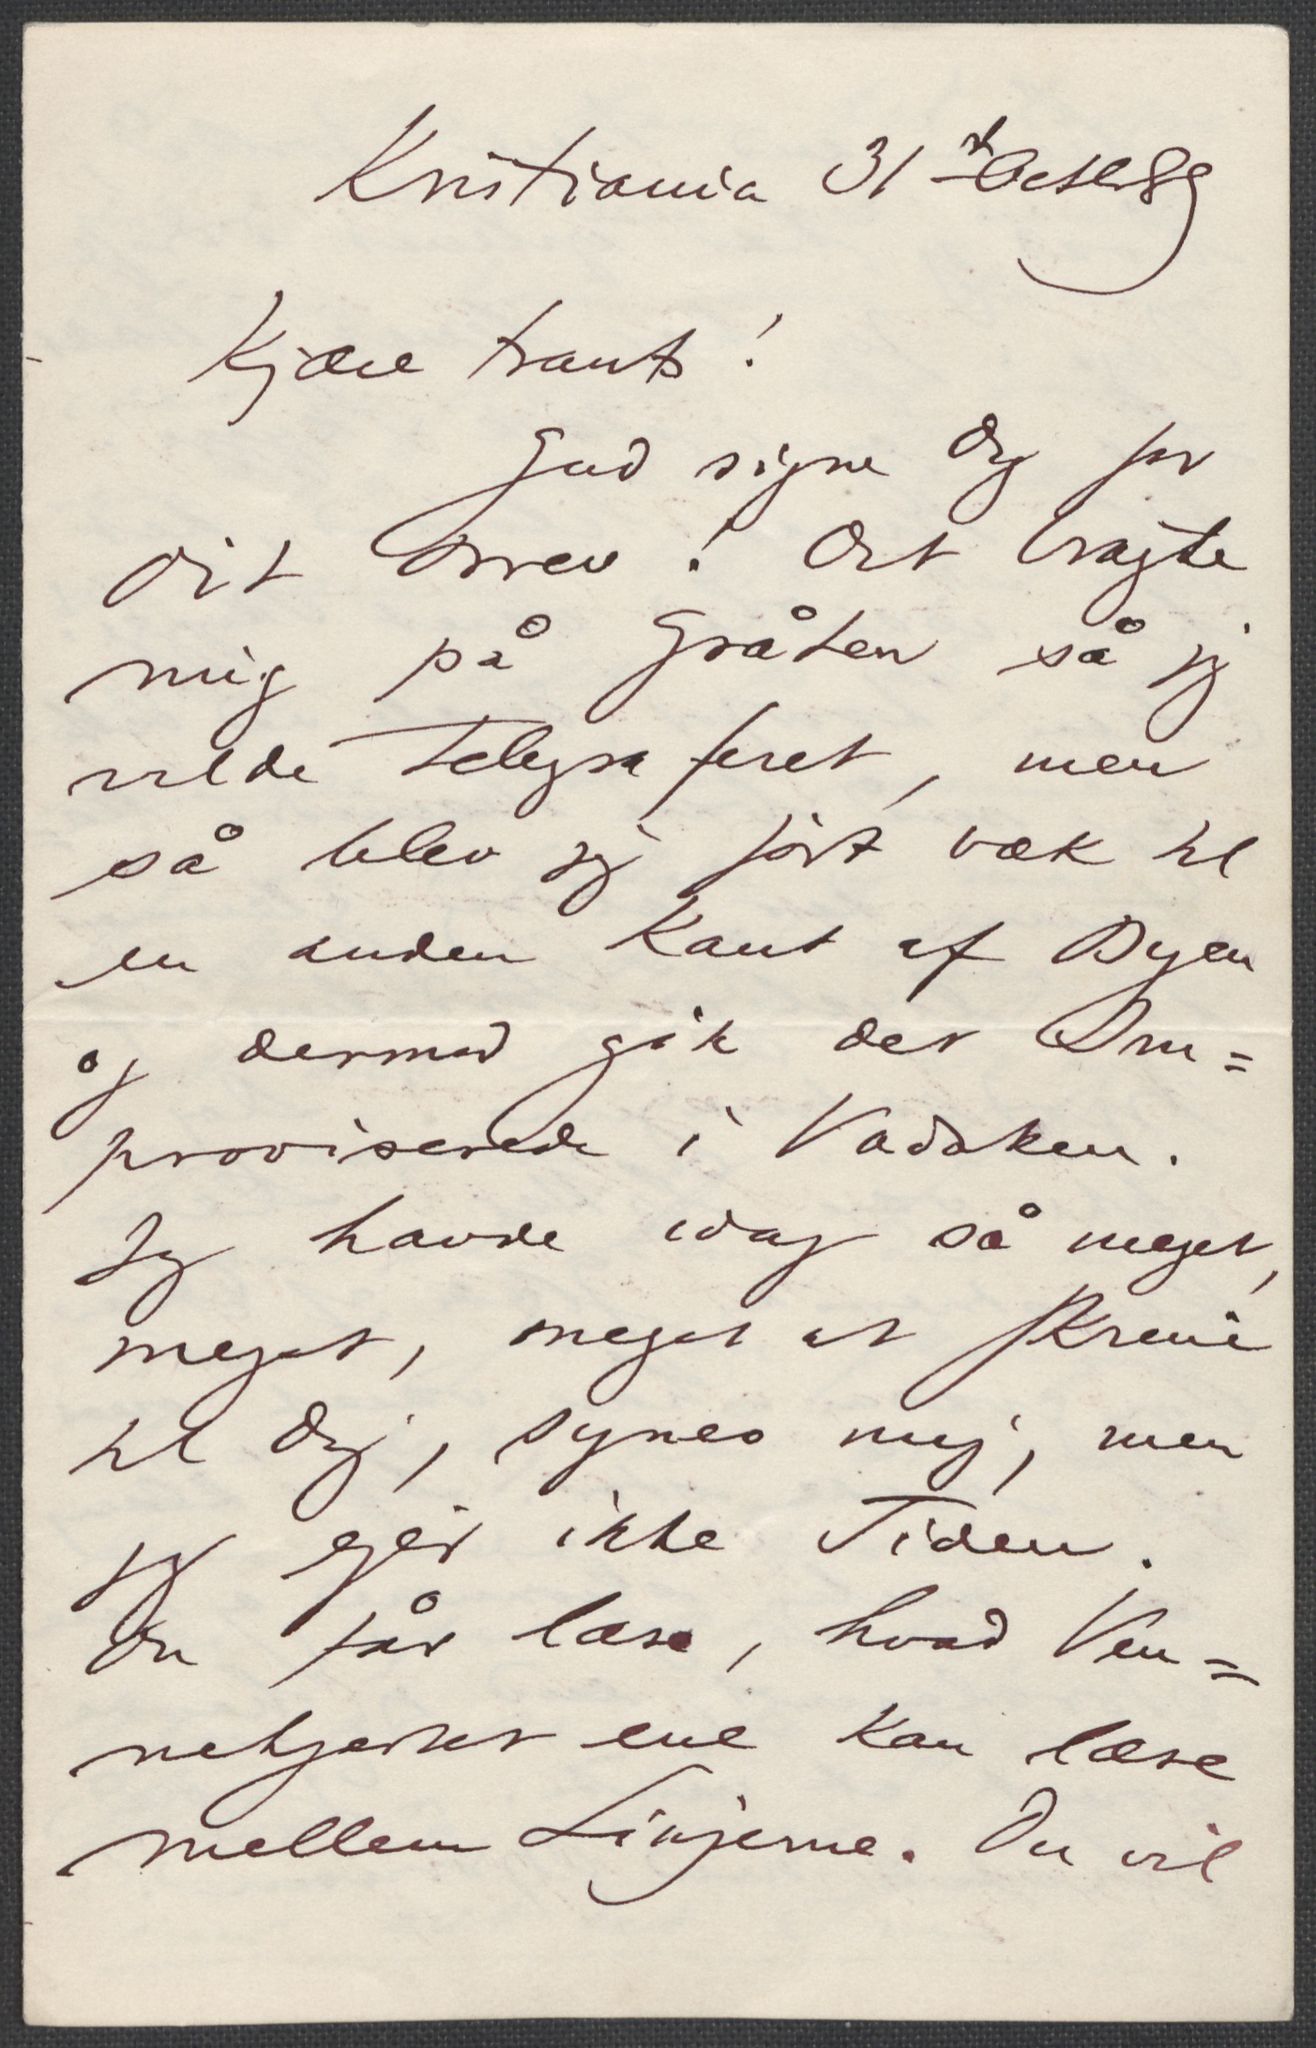 Kristiania 31st Octbr 89
Kjære Frants!
Gud signe Dig for
dit Brev! Det bragte
mig på Gråten så jeg
vilde Telegraferet, men
så blev jeg ført væk til
en anden Kant af Byen
og dermed gik det Im=
proviserede i Vadsken.
Jeg havde idag så meget,
meget, meget at skrive
til Dig, synes mig, men
jeg ejer ikke Tiden.
Du får læse, hvad Ven=
nehjertet ene kan læse
mellem Linjerne. Du vil